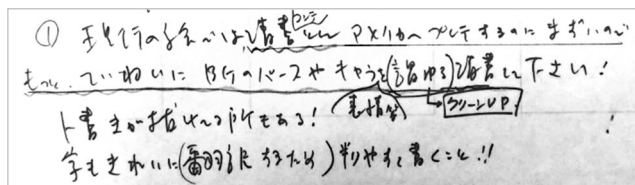 ① 現行の絵では清書として アメリカへプレゼするのにまずいので
もっと、ていねいに BGのパースやキャラを(言わゆる)清書して下さい!
(表情等 クリーンUP
ト書きが抜けてる所もある!
字もきれいに(翻訳するため)判りやすく書くこと!!